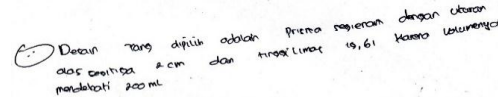 Desain yang dipilih adalah Prisma segienam dengan ukuran
alas segitiga 2 cm dan tinggi limas 19,61 karena volumenya
mendekati 200 ml